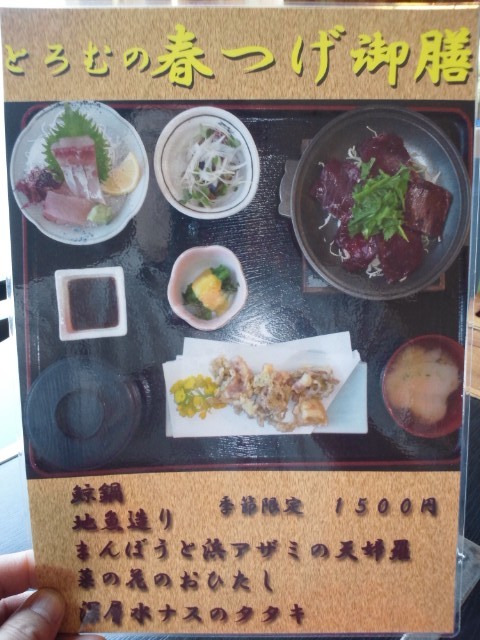 とろむの春つげ御膳
鯨鍋
季節限定 1500円
地魚造り
まんぼうと浜アザミの天婦羅
菜の花のおひたし
深層水ナスのタタキ